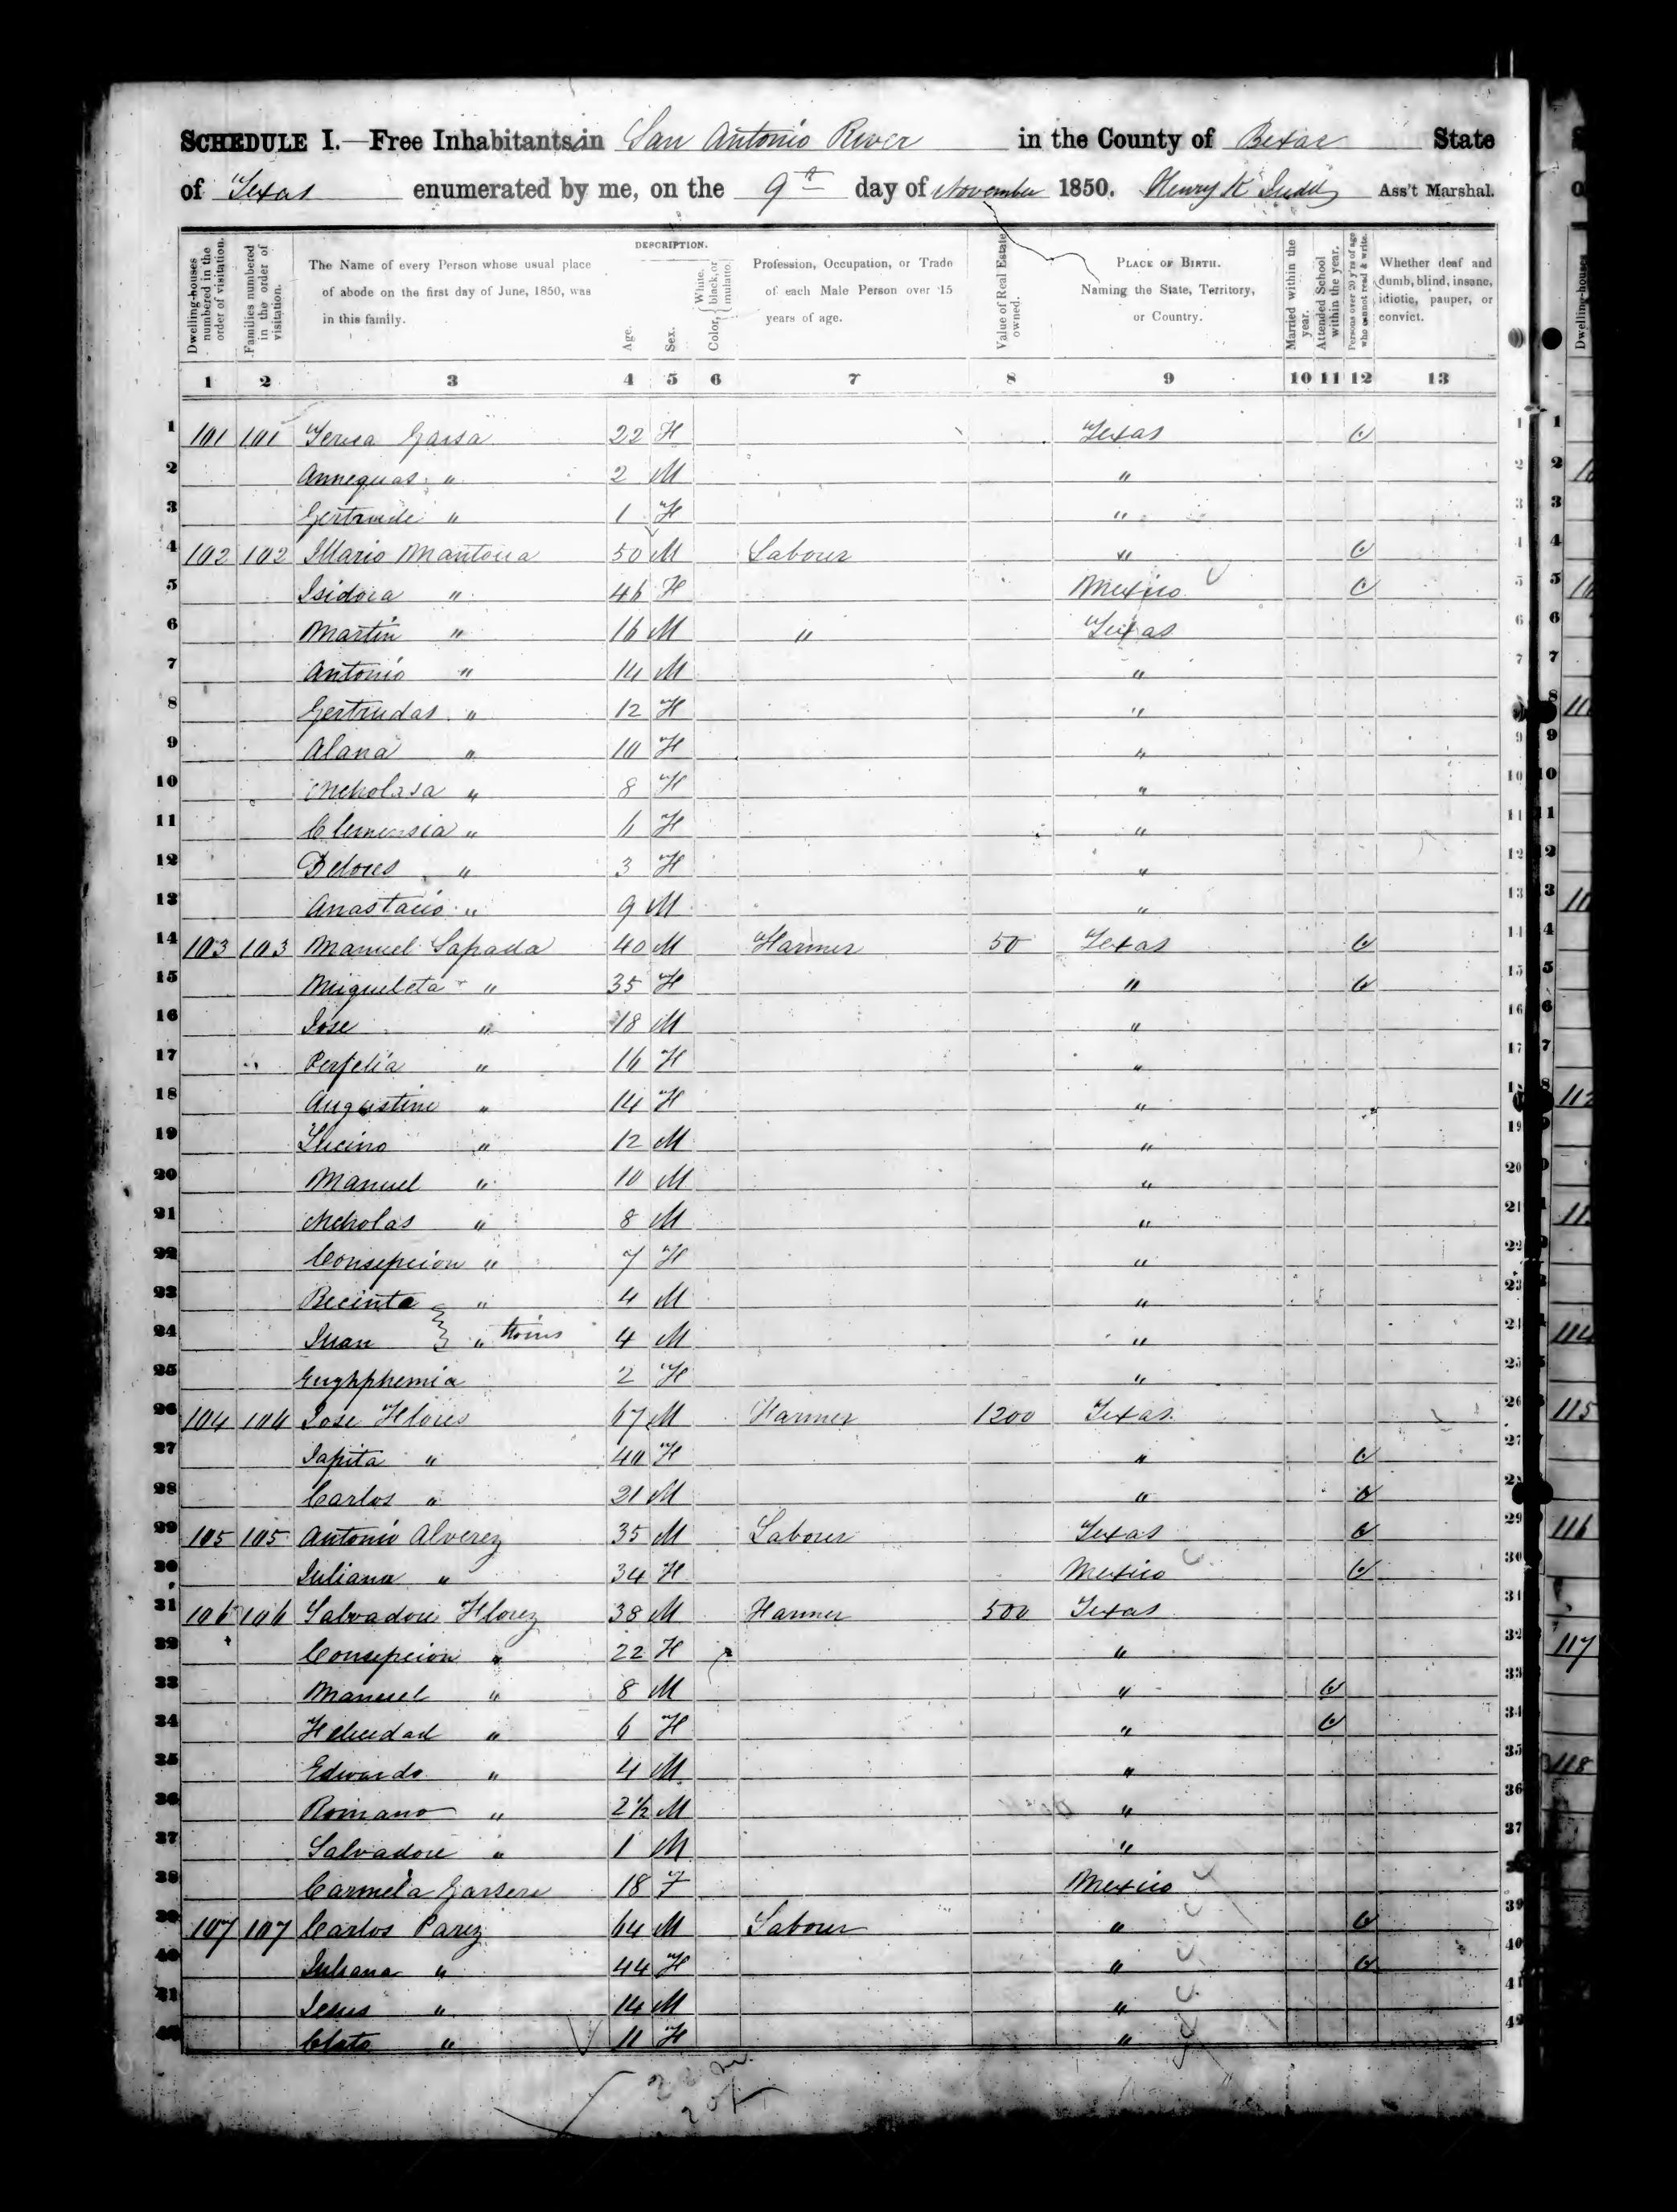 SCHEDULE I.—Free Inhabitants in San Antonio River in the County of Bexar State
of Texas enumerated by me, on the 9th day of November 1850. Henry K Judd Ass't Marshal.
Dwelling-houses numbered in the order of visitation.
Families numbered in the order of visitation.
The Name of every Person whose usual place of abode on the first day of June, 1850, was in this family.
DESCRIPTION.
Age.
Sex.
Color, White, black, or mulatto.
Profession, Occupation, or Trade of each Male Person over 15 years of age.
Value of Real Estate owned.
PLACE OF BIRTH. Naming the State, Territory, or Country.
Married within the year.
Attended School within the year.
Persons over 20 y'rs of age who cannot read & write.
Whether deaf and dumb, blind, insane, idiotic, pauper, or convict.
1 2 3 4 5 6 7 8 9 10 11 12 13
1 101 101 Garsa 22 F Texas
2 " 2 M "
3 Gertrude " 1 F "
4 102 102 Mario Mantoua 50 M Labour "
5 Isidora " 46 F Mexico
6 Martin " 16 M " Texas
7 Antonio " 14 M "
8 Gertrudas " 12 F "
9 Alana " 10 F "
10 Nicholasa " 8 F "
11 Clemensia " 6 F "
12 Delores " 3 F "
13 Anastacio " 9 M "
14 103 103 Manuel Sapada 40 M Farmer 50 Texas
15 Migueleta " 35 F "
16 Jose " 18 M "
17 Perfelia " 16 F "
18 Augustine " 14 F "
19 " 12 M "
20 Manuel " 10 M "
21 Nicholas " 8 M "
22 Consepcion " 7 F "
23 Becinta " 4 M "
24 Juan " twins 4 M "
25 Eughphemia 2 F "
26 104 104 Jose Flores 67 M Farmer 1200 Texas
27 Japita " 40 F "
28 Carlos " 21 M "
29 105 105 Antonio Alverez 35 M Labour Texas
30 Juliana " 34 F Mexico
31 106 106 Salvadore Florez 38 M Farmer 500 Texas
32 Consepcion " 22 F "
33 Manuel " 8 M "
34 Felicidad " 6 F "
35 Edwardo " 4 M "
36 Romano " 2½ M "
37 Salvadore " 1 M "
38 Carmela 18 F Mexico
39 107 107 Carlos Parez 64 M Labour "
40 Juliana " 44 F "
41 Jesus " 14 M "
42 Clato " 11 F "
22 m
20 f